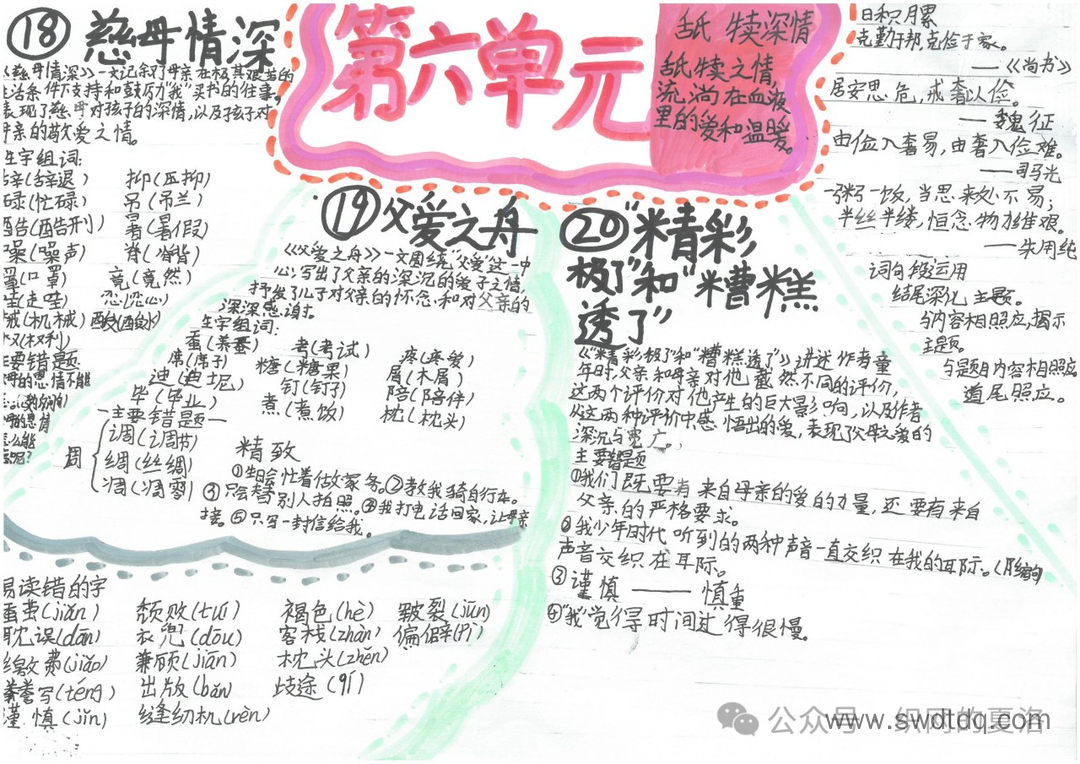 第六单元
舐 犊深情
舐犊之情,
流淌在血液
里的爱和温暖。
⑱ 慈母情深
《慈母情深》一文记叙了母亲在极其艰苦的
生活条件下支持和鼓励"我"买书的往事,
表现了慈母对孩子的深情,以及孩子对
母亲的敬爱之情。
生字组词:
辞(辞退) 抑(压抑)
碌(忙碌) 吊(吊兰)
酷(酷刑) 暑(暑假)
噪(噪声) 脊(脊背)
罩(口罩) 竟(竟然)
哇(哇) 忍(忍心)
械(机械) 酸(酸
权(权利)
主要错题
⑲ 父爱之舟
《父爱之舟》一文围绕"父爱"这一中
心,写出了父亲的深沉的爱子之情,
抒发了儿子对父亲的怀念,和对父亲的
深深感谢。
生字组词:
蚕(养蚕) 考(考试) 疼(疼爱)
席(席子) 糖(糖果) 屑(木屑)
迪(迪 钉(钉子) 陪(陪伴)
毕(毕业) 煮(煮饭) 枕(枕头)
主要错题
周
调(调节)
绸(丝绸)
凋(凋零)
精致
忙着做家务。②教我骑自行车。
③只会 别人拍照。④我打电话回家,让母亲
接。⑤只写一封信给我。
易读错的字
蚕茧(jiǎn) 颓败(tuí) 褐色(hè) 皲裂(jūn)
耽误(dān) 衣兜(dōu) 客栈(zhàn) 偏僻(pì)
缴费(jiǎo) 兼顾(jiān) 枕头(zhěn)
誊写(téng) 出版(bǎn 歧途(qí)
谨慎(jǐn) 缝纫机(rèn)
⑳ "精彩
极了"和"糟糕
透了"
《"精彩极了"和"糟糕透了"》讲述作者童
年时,父亲和母亲对他截然不同的评价,
这两个评价对他产生的巨大影响,以及作者
从这两种评价中感悟出的爱,表现了父母之爱的
深沉与宽广。
主要错题
①我们既要有来自母亲的爱的力量,还要有来自
父亲的严格要求。
②我少年时代听到的两种声音一直交织在我的耳际。(缩句)
声音交织在耳际。
③谨慎——慎重
④"我"觉得时间过得很慢。
日积月累
克勤于邦,克俭于家。
——《尚书》
居安思危,戒奢以俭。
——魏征
由俭入奢易,由奢入俭难。
——司马光
一粥一饭,当思来处不易;
半丝半缕,恒念物力维艰。
——朱用纯
词句段运用
结尾深化主题。
与内容相照应,揭示
主题。
与题目内容相照应
首尾照应。
公众号·织网的夏洛
www.swdtdq.com